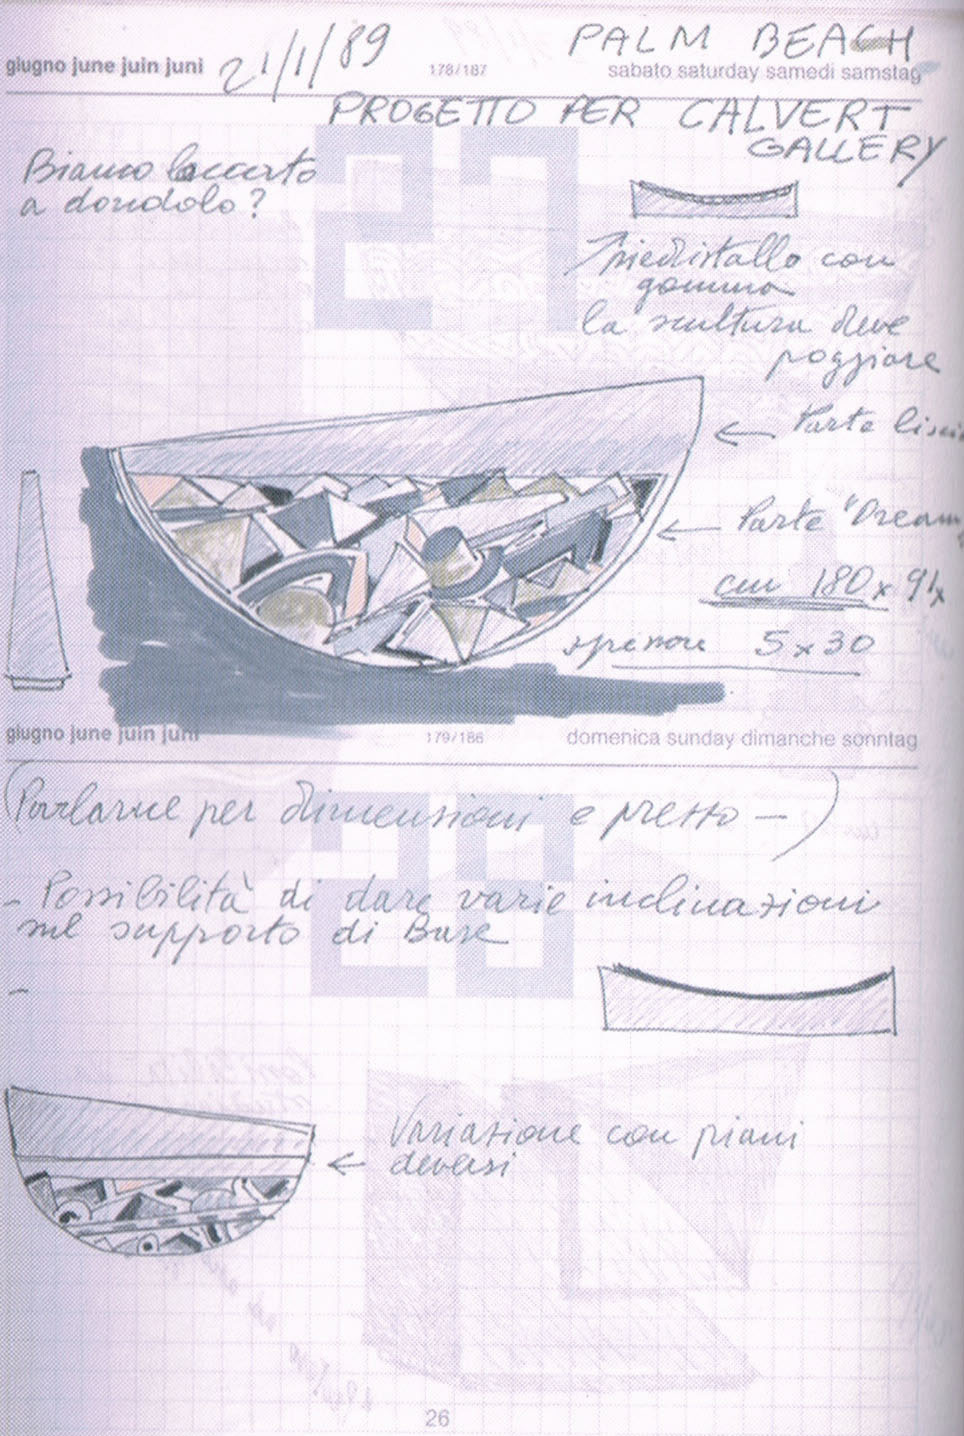 giugno june juin juni
21/1/89
178/187
PALM BEACH
sabato saturday samedi samstag
PROGETTO PER CALVERT
GALLERY
27
Bianco laccato
a dondolo?
Piedistallo con
gomma
la scultura deve
poggiare
← Parte liscia
← Parte "Dream"
cm 180 x 91 x
spessore 5 x 30
giugno june juin juni
179/186
domenica sunday dimanche sonntag
28
(Parlarne per dimensioni e prezzo —)
- Possibilità di dare varie inclinazioni
sul supporto di Base
-
← Variazione con piani
diversi
26